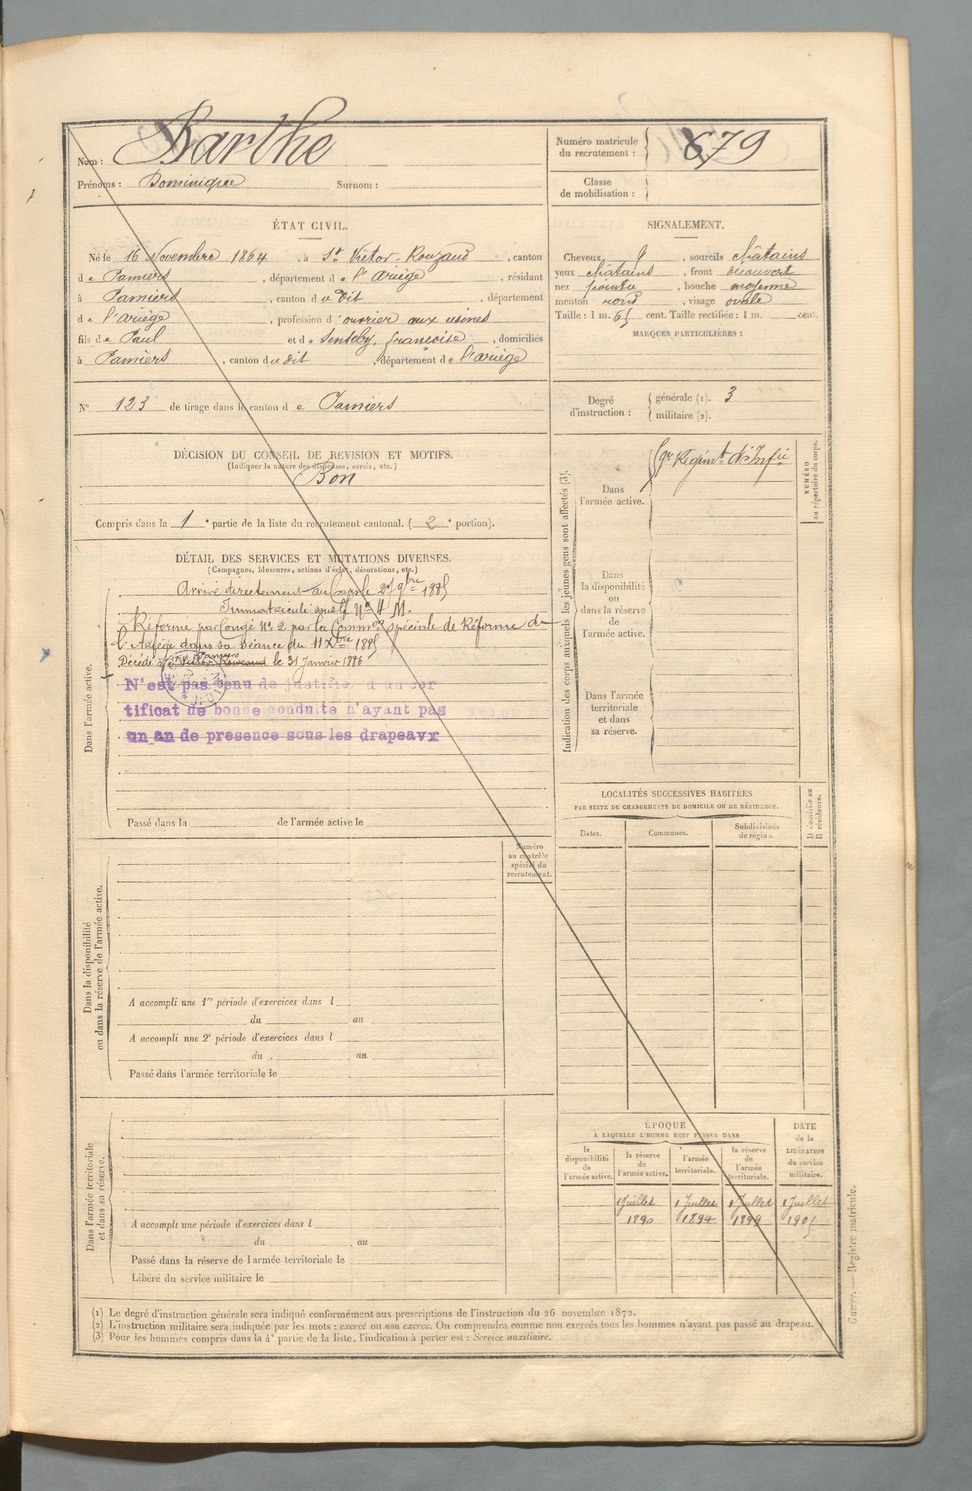 Nom : Barthe
Prénoms : Dominique Surnom :
Numéro matricule du recrutement : 679
Classe de mobilisation :
ÉTAT CIVIL.
Né le 16 Novembre 1864, à St Victor-Rouzaud, canton
de Pamiers, département de l'Ariège, résidant
à Pamiers, canton du dit, département
de l'Ariège, profession d'ouvrier aux usines
fils de Paul et de Senteby, françoise, domiciliés
à Pamiers, canton du dit, département de l'Ariège
SIGNALEMENT.
Cheveux &, sourcils châtains
yeux châtains, front découvert
nez pointu, bouche moyenne
menton rond, visage ovale
Taille : 1 m. 65 cent. Taille rectifiée : 1 m. cent.
MARQUES PARTICULIÈRES :
N° 123 de tirage dans le canton de Pamiers
Degré d'instruction : générale (1). 3
militaire (2).
DÉCISION DU CONSEIL DE REVISION ET MOTIFS.
(Indiquer la nature des dispenses, sursis, etc.)
Bon
Compris dans la 1e partie de la liste du recrutement cantonal. (2e portion).
DÉTAIL DES SERVICES ET MUTATIONS DIVERSES.
(Campagnes, blessures, actions d'éclat, décorations, etc.)
Dans l'armée active.
Arrivé directement au Corps le 9bre 1885
Immatriculé sous le N° M.
Réformé par Congé N° 2 par la Common spéciale de Réforme de
l'Ariège dans sa séance du 11 Xbre 1885
Décédé à Pamiers le 31 Janvier 1886
N'est pas venu de justifie d'un cer
tificat de bonne conduite n'ayant pas
un an de presence sous les drapeaux
Passé dans la de l'armée active le
Indication des corps auxquels les jeunes gens sont affectés (3).
Dans l'armée active.
Régimt d'Infie
NUMÉRO au répertoire du corps.
Dans la disponibilité ou dans la réserve de l'armée active.
Dans l'armée territoriale et dans sa réserve.
LOCALITÉS SUCCESSIVES HABITÉES
PAR SUITE DE CHANGEMENTS DE DOMICILE OU DE RÉSIDENCE.
Dates. Communes. Subdivisions de région. D domicile ou R résidence.
Dans la disponibilité ou dans la réserve de l'armée active.
Numéro au contrôle spécial du recrutement.
A accompli une 1re période d'exercices dans l
du au
A accompli une 2e période d'exercices dans l
du au
Passé dans l'armée territoriale le
Dans l'armée territoriale et dans sa réserve.
A accompli une période d'exercices dans l
du au
Passé dans la réserve de l'armée territoriale le
Libéré du service militaire le
ÉPOQUE
A LAQUELLE L'HOMME DOIT PASSER DANS
la disponibilité de l'armée active.
la réserve de l'armée active.
l'armée territoriale.
la réserve de l'armée territoriale.
DATE de la LIBÉRATION du service militaire.
1 Juillet 1 Juillet 1 Juillet 1 Juillet
1890 1894 1899 1905
(1) Le degré d'instruction générale sera indiqué conformément aux prescriptions de l'instruction du 26 novembre 1872.
(2) L'instruction militaire sera indiquée par les mots : exercé ou non exercé. On comprendra comme non exercés tous les hommes n'ayant pas passé au drapeau.
(3) Pour les hommes compris dans la 4e partie de la liste, l'indication à porter est : Service auxiliaire.
Guerre. — Registre matricule.